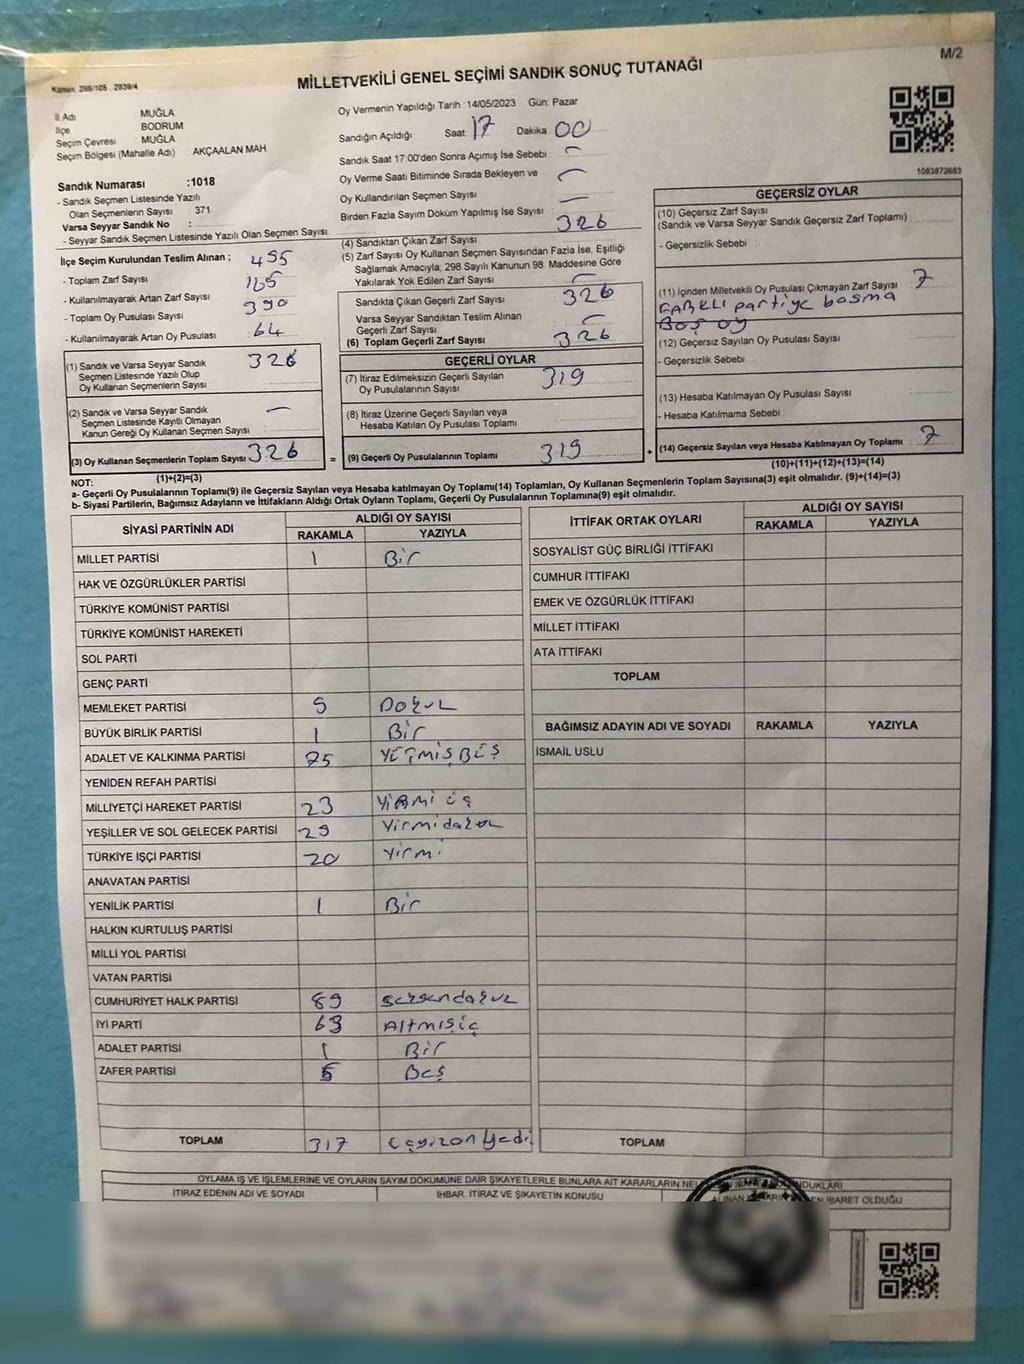 Kanun. 298/105 , 2839/4
M/2
MİLLETVEKİLİ GENEL SEÇİMİ SANDIK SONUÇ TUTANAĞI
İl Adı MUĞLA
İlçe BODRUM
Seçim Çevresi MUĞLA
Seçim Bölgesi (Mahalle Adı) AKÇAALAN MAH
Sandık Numarası :1018
- Sandık Seçmen Listesinde Yazılı
Olan Seçmenlerin Sayısı : 371
Varsa Seyyar Sandık No :
- Seyyar Sandık Seçmen Listesinde Yazılı Olan Seçmen Sayısı
İlçe Seçim Kurulundan Teslim Alınan ;
- Toplam Zarf Sayısı 495
- Kullanılmayarak Artan Zarf Sayısı 165
- Toplam Oy Pusulası Sayısı 390
- Kullanılmayarak Artan Oy Pusulası 64
(1) Sandık ve Varsa Seyyar Sandık 326
Seçmen Listesinde Yazılı Olup
Oy Kullanan Seçmenlerin Sayısı
(2) Sandık ve Varsa Seyyar Sandık —
Seçmen Listesinde Kayıtlı Olmayan
Kanun Gereği Oy Kullanan Seçmen Sayısı
(3) Oy Kullanan Seçmenlerin Toplam Sayısı 326
(1)+(2)=(3)
Oy Vermenin Yapıldığı Tarih : 14/05/2023 Gün: Pazar
Sandığın Açıldığı Saat 17 Dakika 00
Sandık Saat 17:00'den Sonra Açımış İse Sebebi :
Oy Verme Saati Bitiminde Sırada Bekleyen ve
Oy Kullandırılan Seçmen Sayısı
Birden Fazla Sayım Döküm Yapılmış İse Sayısı
(4) Sandıktan Çıkan Zarf Sayısı 326
(5) Zarf Sayısı Oy Kullanan Seçmen Sayısından Fazla İse, Eşitliği
Sağlamak Amacıyla; 298 Sayılı Kanunun 98. Maddesine Göre
Yakılarak Yok Edilen Zarf Sayısı
Sandıkta Çıkan Geçerli Zarf Sayısı 326
Varsa Seyyar Sandıktan Teslim Alınan
Geçerli Zarf Sayısı
(6) Toplam Geçerli Zarf Sayısı 326
GEÇERLİ OYLAR
(7) İtiraz Edilmeksizin Geçerli Sayılan 319
Oy Pusulalarının Sayısı
(8) İtiraz Üzerine Geçerli Sayılan veya
Hesaba Katılan Oy Pusulası Toplamı
= (9) Geçerli Oy Pusulalarının Toplamı 319
1083872683
GEÇERSİZ OYLAR
(10) Geçersiz Zarf Sayısı
(Sandık ve Varsa Seyyar Sandık Geçersiz Zarf Toplamı) :
- Geçersizlik Sebebi :
(11) İçinden Milletvekili Oy Pusulası Çıkmayan Zarf Sayısı : 7
FARKLI partiye basma
Boş oy
(12) Geçersiz Sayılan Oy Pusulası Sayısı :
- Geçersizlik Sebebi
(13) Hesaba Katılmayan Oy Pusulası Sayısı
- Hesaba Katılmama Sebebi
+ (14) Geçersiz Sayılan veya Hesaba Katılmayan Oy Toplamı 7
(10)+(11)+(12)+(13)=(14)
NOT:
a- Geçerli Oy Pusulalarının Toplamı(9) ile Geçersiz Sayılan veya Hesaba katılmayan Oy Toplamı(14) Toplamları, Oy Kullanan Seçmenlerin Toplam Sayısına(3) eşit olmalıdır. (9)+(14)=(3)
b- Siyasi Partilerin, Bağımsız Adayların ve İttifakların Aldığı Ortak Oyların Toplamı, Geçerli Oy Pusulalarının Toplamına(9) eşit olmalıdır.
SİYASİ PARTİNİN ADI ALDIĞI OY SAYISI
RAKAMLA YAZIYLA
MİLLET PARTİSİ 1 Bir
HAK VE ÖZGÜRLÜKLER PARTİSİ
TÜRKİYE KOMÜNİST PARTİSİ
TÜRKİYE KOMÜNİST HAREKETİ
SOL PARTİ
GENÇ PARTİ
MEMLEKET PARTİSİ 9 Dokuz
BÜYÜK BİRLİK PARTİSİ 1 Bir
ADALET VE KALKINMA PARTİSİ 75 YETMİŞ BEŞ
YENİDEN REFAH PARTİSİ
MİLLİYETÇİ HAREKET PARTİSİ 23 Yirmi üç
YEŞİLLER VE SOL GELECEK PARTİSİ 29 Yirmidokuz
TÜRKİYE İŞÇİ PARTİSİ 20 Yirmi
ANAVATAN PARTİSİ
YENİLİK PARTİSİ 1 Bir
HALKIN KURTULUŞ PARTİSİ
MİLLİ YOL PARTİSİ
VATAN PARTİSİ
CUMHURİYET HALK PARTİSİ 89 Seksendokuz
İYİ PARTİ 63 Altmışüç
ADALET PARTİSİ 1 Bir
ZAFER PARTİSİ 5 Beş
TOPLAM 317 üçyüzonyedi
İTTİFAK ORTAK OYLARI ALDIĞI OY SAYISI
RAKAMLA YAZIYLA
SOSYALİST GÜÇ BİRLİĞİ İTTİFAKI
CUMHUR İTTİFAKI
EMEK VE ÖZGÜRLÜK İTTİFAKI
MİLLET İTTİFAKI
ATA İTTİFAKI
TOPLAM
BAĞIMSIZ ADAYIN ADI VE SOYADI RAKAMLA YAZIYLA
İSMAİL USLU
TOPLAM
OYLAMA İŞ VE İŞLEMLERİNE VE OYLARIN SAYIM DÖKÜMÜNE DAİR ŞİKAYETLERLE BUNLARA AİT KARARLARIN
İTİRAZ EDENİN ADI VE SOYADI İHBAR, İTİRAZ VE ŞİKAYETİN KONUSU İBARET OLDUĞU